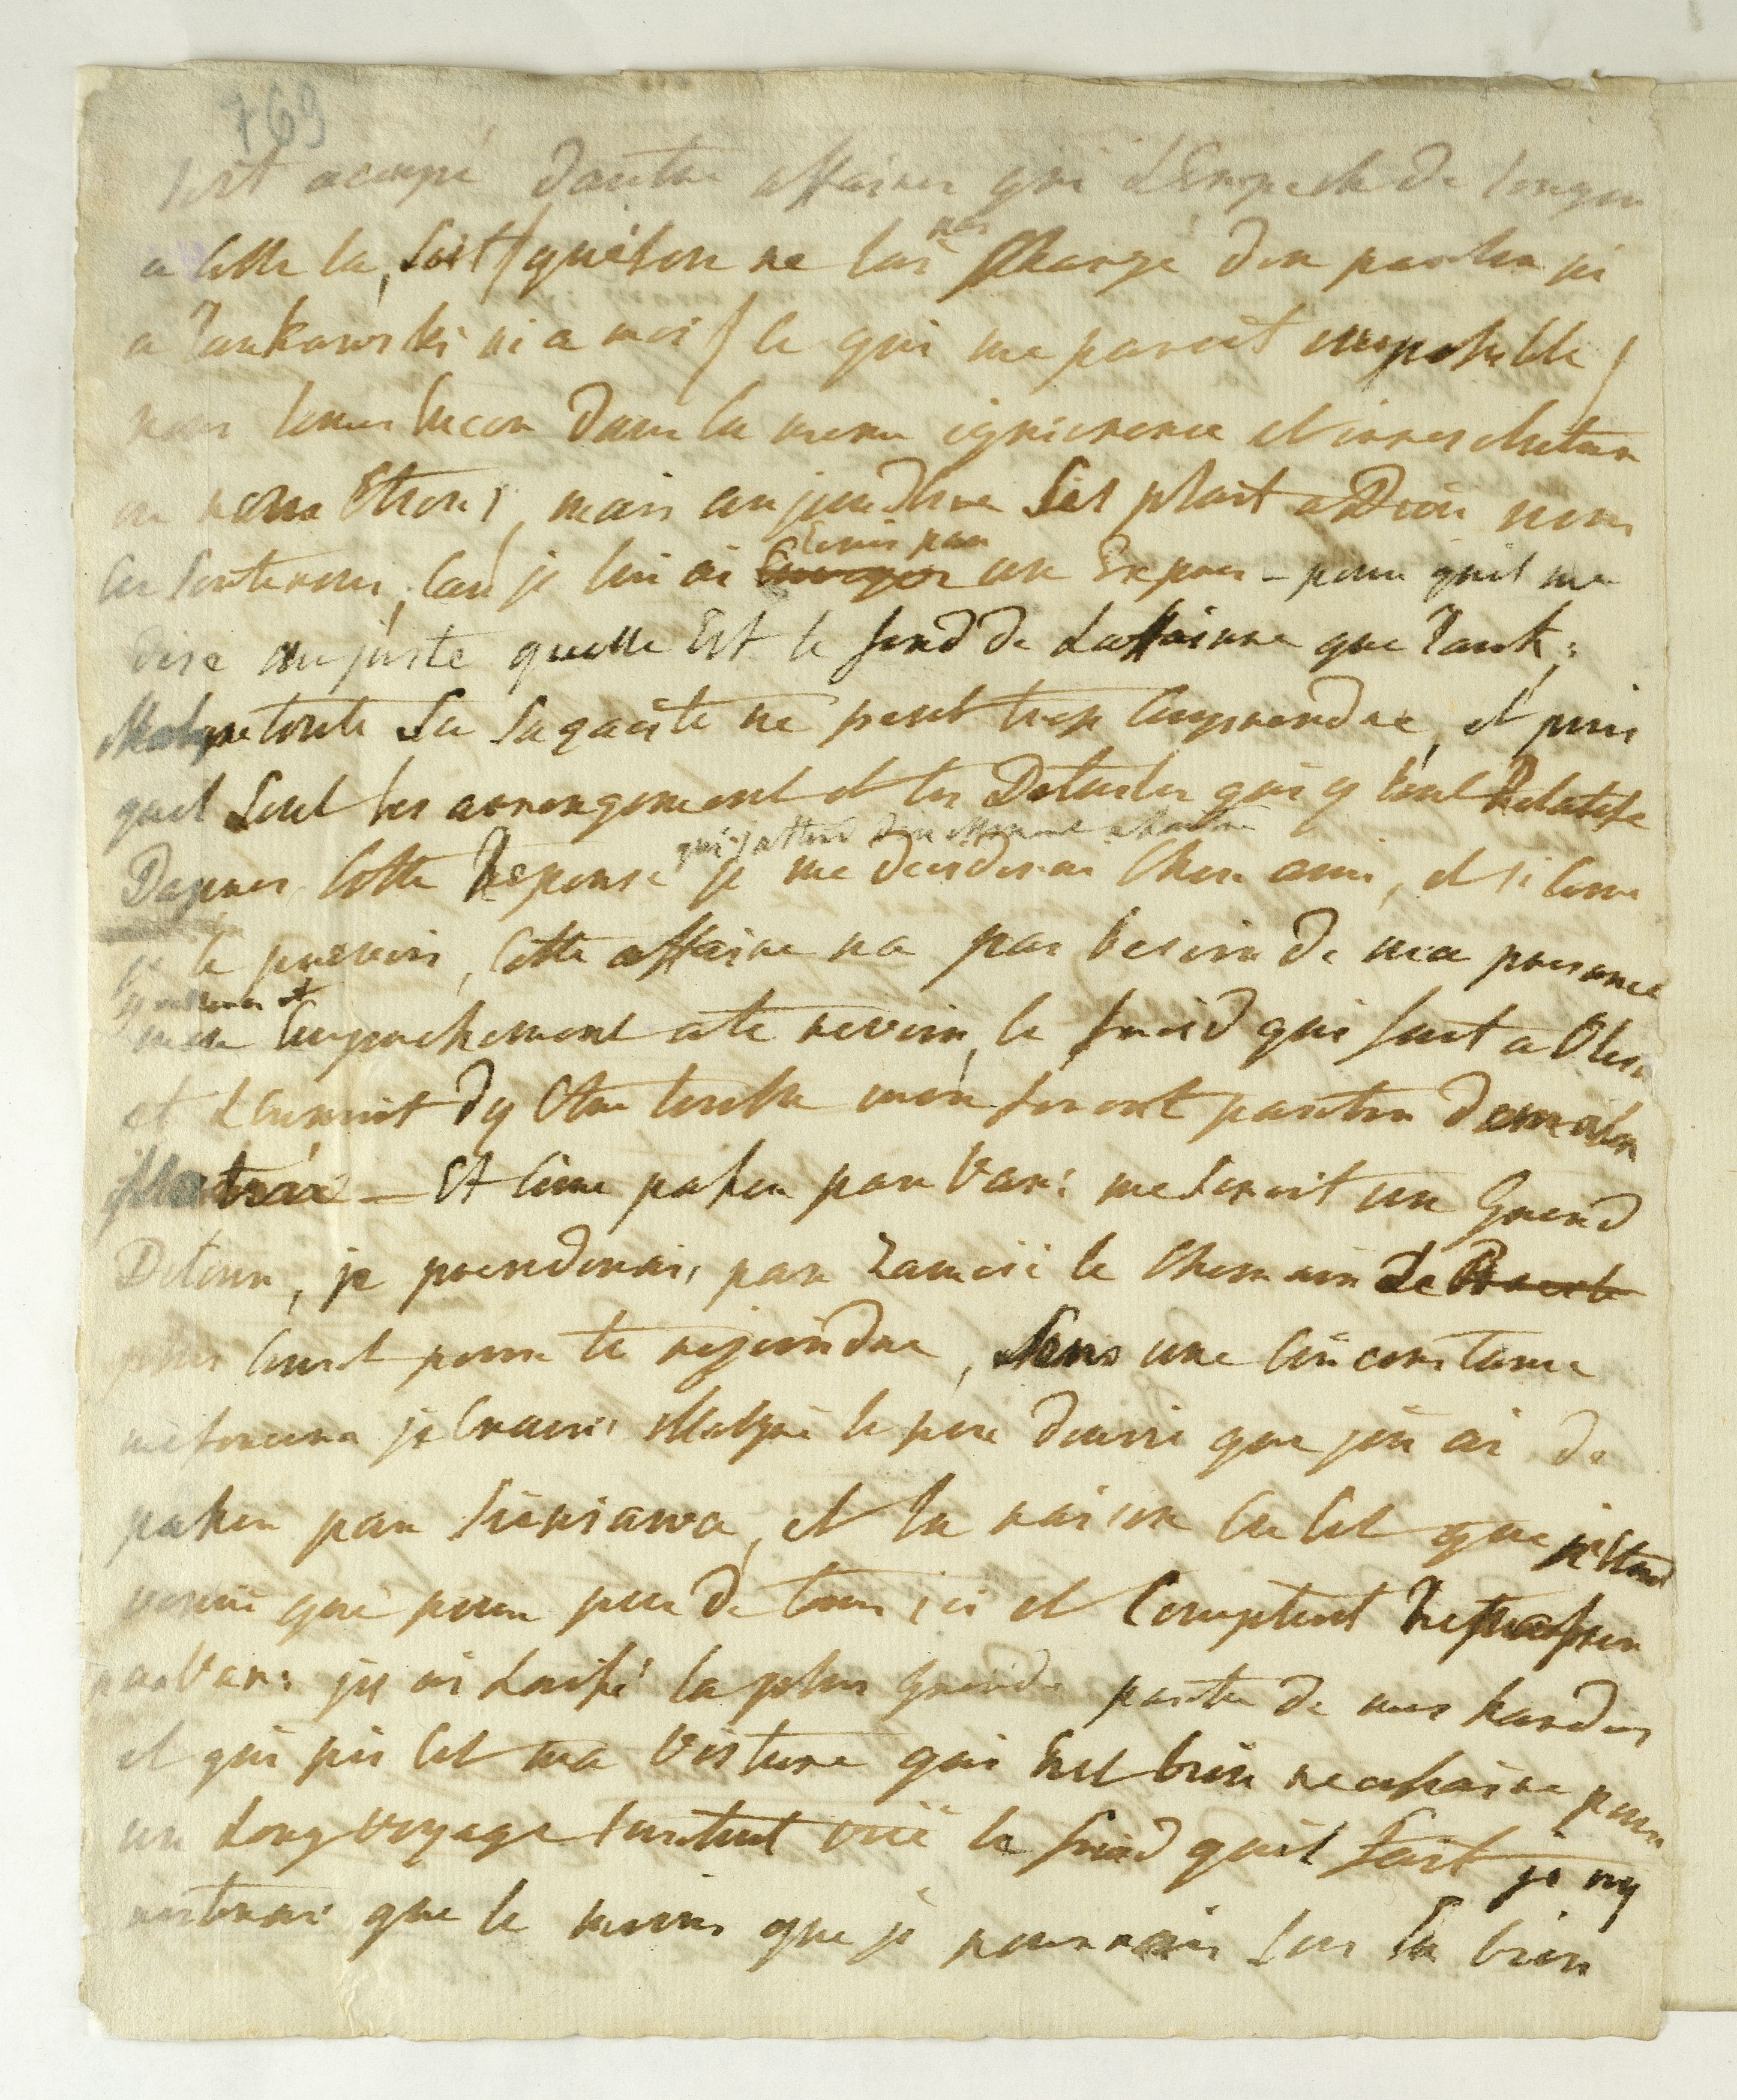 769
soit ocupé dautre affaires qui L'Empeche de songer
a cette la, soit quelon ne lui
pas
Charge d'en parler ni
a Zankowski ni a moi / ce qui me paroit impossible /
nous somes Encor dans la meme ignorence et irresolution
ou nous Etions, mais aujourdhui sil plait a Dieu nous
en sortirons, Car je lui ai Envoyer un Expres - pour quil me
Ecris par
dise au juste quelle Est le fond de Laffaire que Zank:
Malgre toute sa sagacite ne peut trop Comprendre, et puis
quel sont les arrengement et les Detailes qui y sont Relatife
qui j'attend
Dapres Cette Reponse je me deciderai Cher ami, et si Come
je le prevois, Cette affaire na pas besoin de ma presence
mon Empechement a te revoir, le froid qui fait a Oles
et L'ennuit dy Etre seulle mon feront partir demain
Matin - Et Come passer par Var: me seroit un Grend
Detour, je prenderai, par Zamosc le Chemin Le
plus Court pour te rejoindre, sens une Circonstance
me forcera je Crains Malgré le peu denvie que j'en ai de
passer par Sieniawa, et la raison en Est que n'Etant
venue que pour peu de tems ici et Comptent Repasser
par Var: jy ai Laissé la plus grende partie de mes hardes
et qui pis Est ma Voiture qui Est bien necessaire pour
un Long voyage surtout vue le froid quil fait je ny
resterai que le moins que je pourrais sur bien